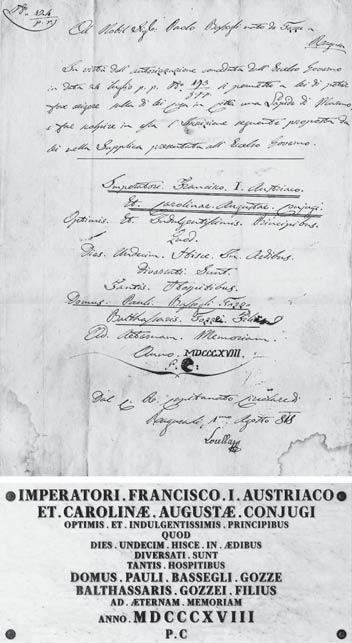 N.º 424
p. p.
Al Nobil Sig.r Paolo Bassegli nato de Gozze
Ragusa
In virtù dell'autorizzazione conceduta dall'Eccelso Governo
in data 26 luglio p. p. N.º
si permette a lei di poter
far erigere nella di lei in una Lapide di Marmo,
e fare scolpire in essa l'Iscrizione seguente proposta da
lei nella Supplica presentata all'Eccelso Governo.
Imperatori. Francisco. I. Austriaco.
Et. Carolinae. Augustae. Conjugi.
Optimis. Et. Indulgentissimis. Principibus.
Quod.
Dies. Undecim. Hisce. In. Aedibus.
Diversati. Sunt.
Tantis. Hospitibus.
Domus. Pauli. Bassegli. Gozze
Balthassaris. Gozzei. Filius
Ad. Aeternam. Memoriam.
Anno. MDCCCXVIII.
P. C.
Dal C. R. Capitanato Circolare
Ragusa 1mo Agosto 818
IMPERATORI.FRANCISCO.I.AUSTRIACO
ET.CAROLINÆ.AUGUSTÆ.CONJUGI
OPTIMIS.ET.INDULGENTISSIMIS.PRINCIPIBUS
QUOD
DIES.UNDECIM.HISCE.IN.ÆDIBUS
DIVERSATI.SUNT
TANTIS.HOSPITIBUS
DOMUS.PAULI.BASSEGLI.GOZZE
BALTHASSARIS.GOZZEI.FILIUS
AD.ÆTERNAM.MEMORIAM
ANNO.MDCCCXVIII
P.C